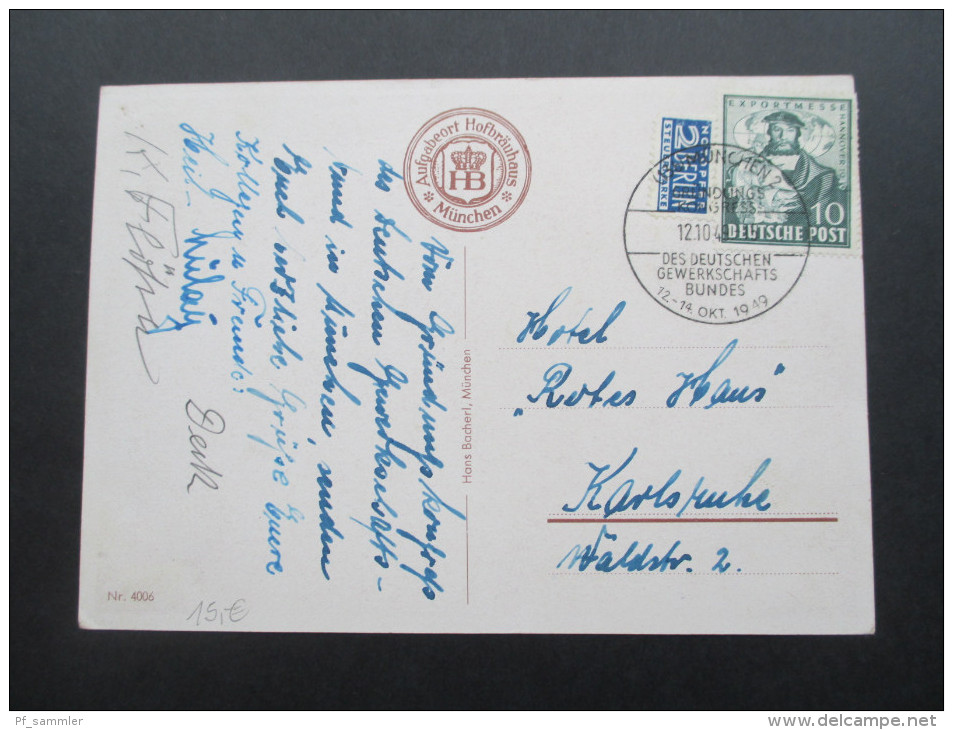 Aufgabeort Hofbräuhaus
HB
München
NOTOPFER
2 BERLIN
STEUERMARKE
EXPORTMESSE HANNOVER 1949
10
DEUTSCHE POST
MÜNCHEN 2
GRÜNDUNGS
KONGRESS
12.10.49
DES DEUTSCHEN
GEWERKSCHAFTS
BUNDES
12.-14. OKT. 1949
Vom Gründungskongress
des Deutschen Gewerkschafts-
bund in München, senden
Euch herzliche Grüße Eure
Kollegen u. Freunde.
Hans Bacherl, München
Hotel
"Rotes Haus"
Karlsruhe
Waldstr. 2.
Nr. 4006
15,-€
Pf_sammler
www.delcampe.net